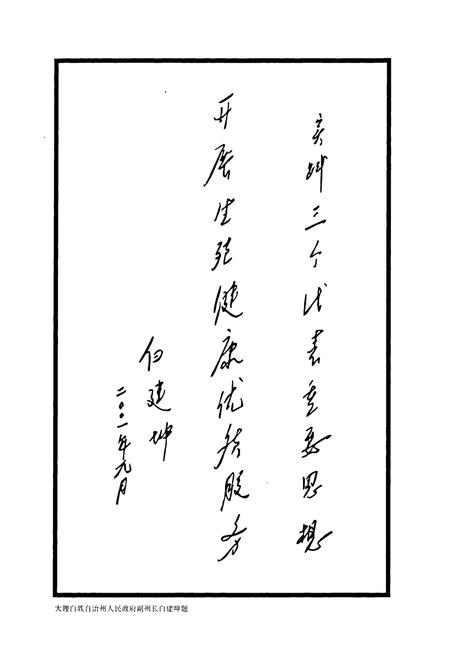 实践三个代表重要思想
开展生殖健康优质服务
白建坤
二〇〇一年九月
大理白族自治州人民政府副州长白建坤题